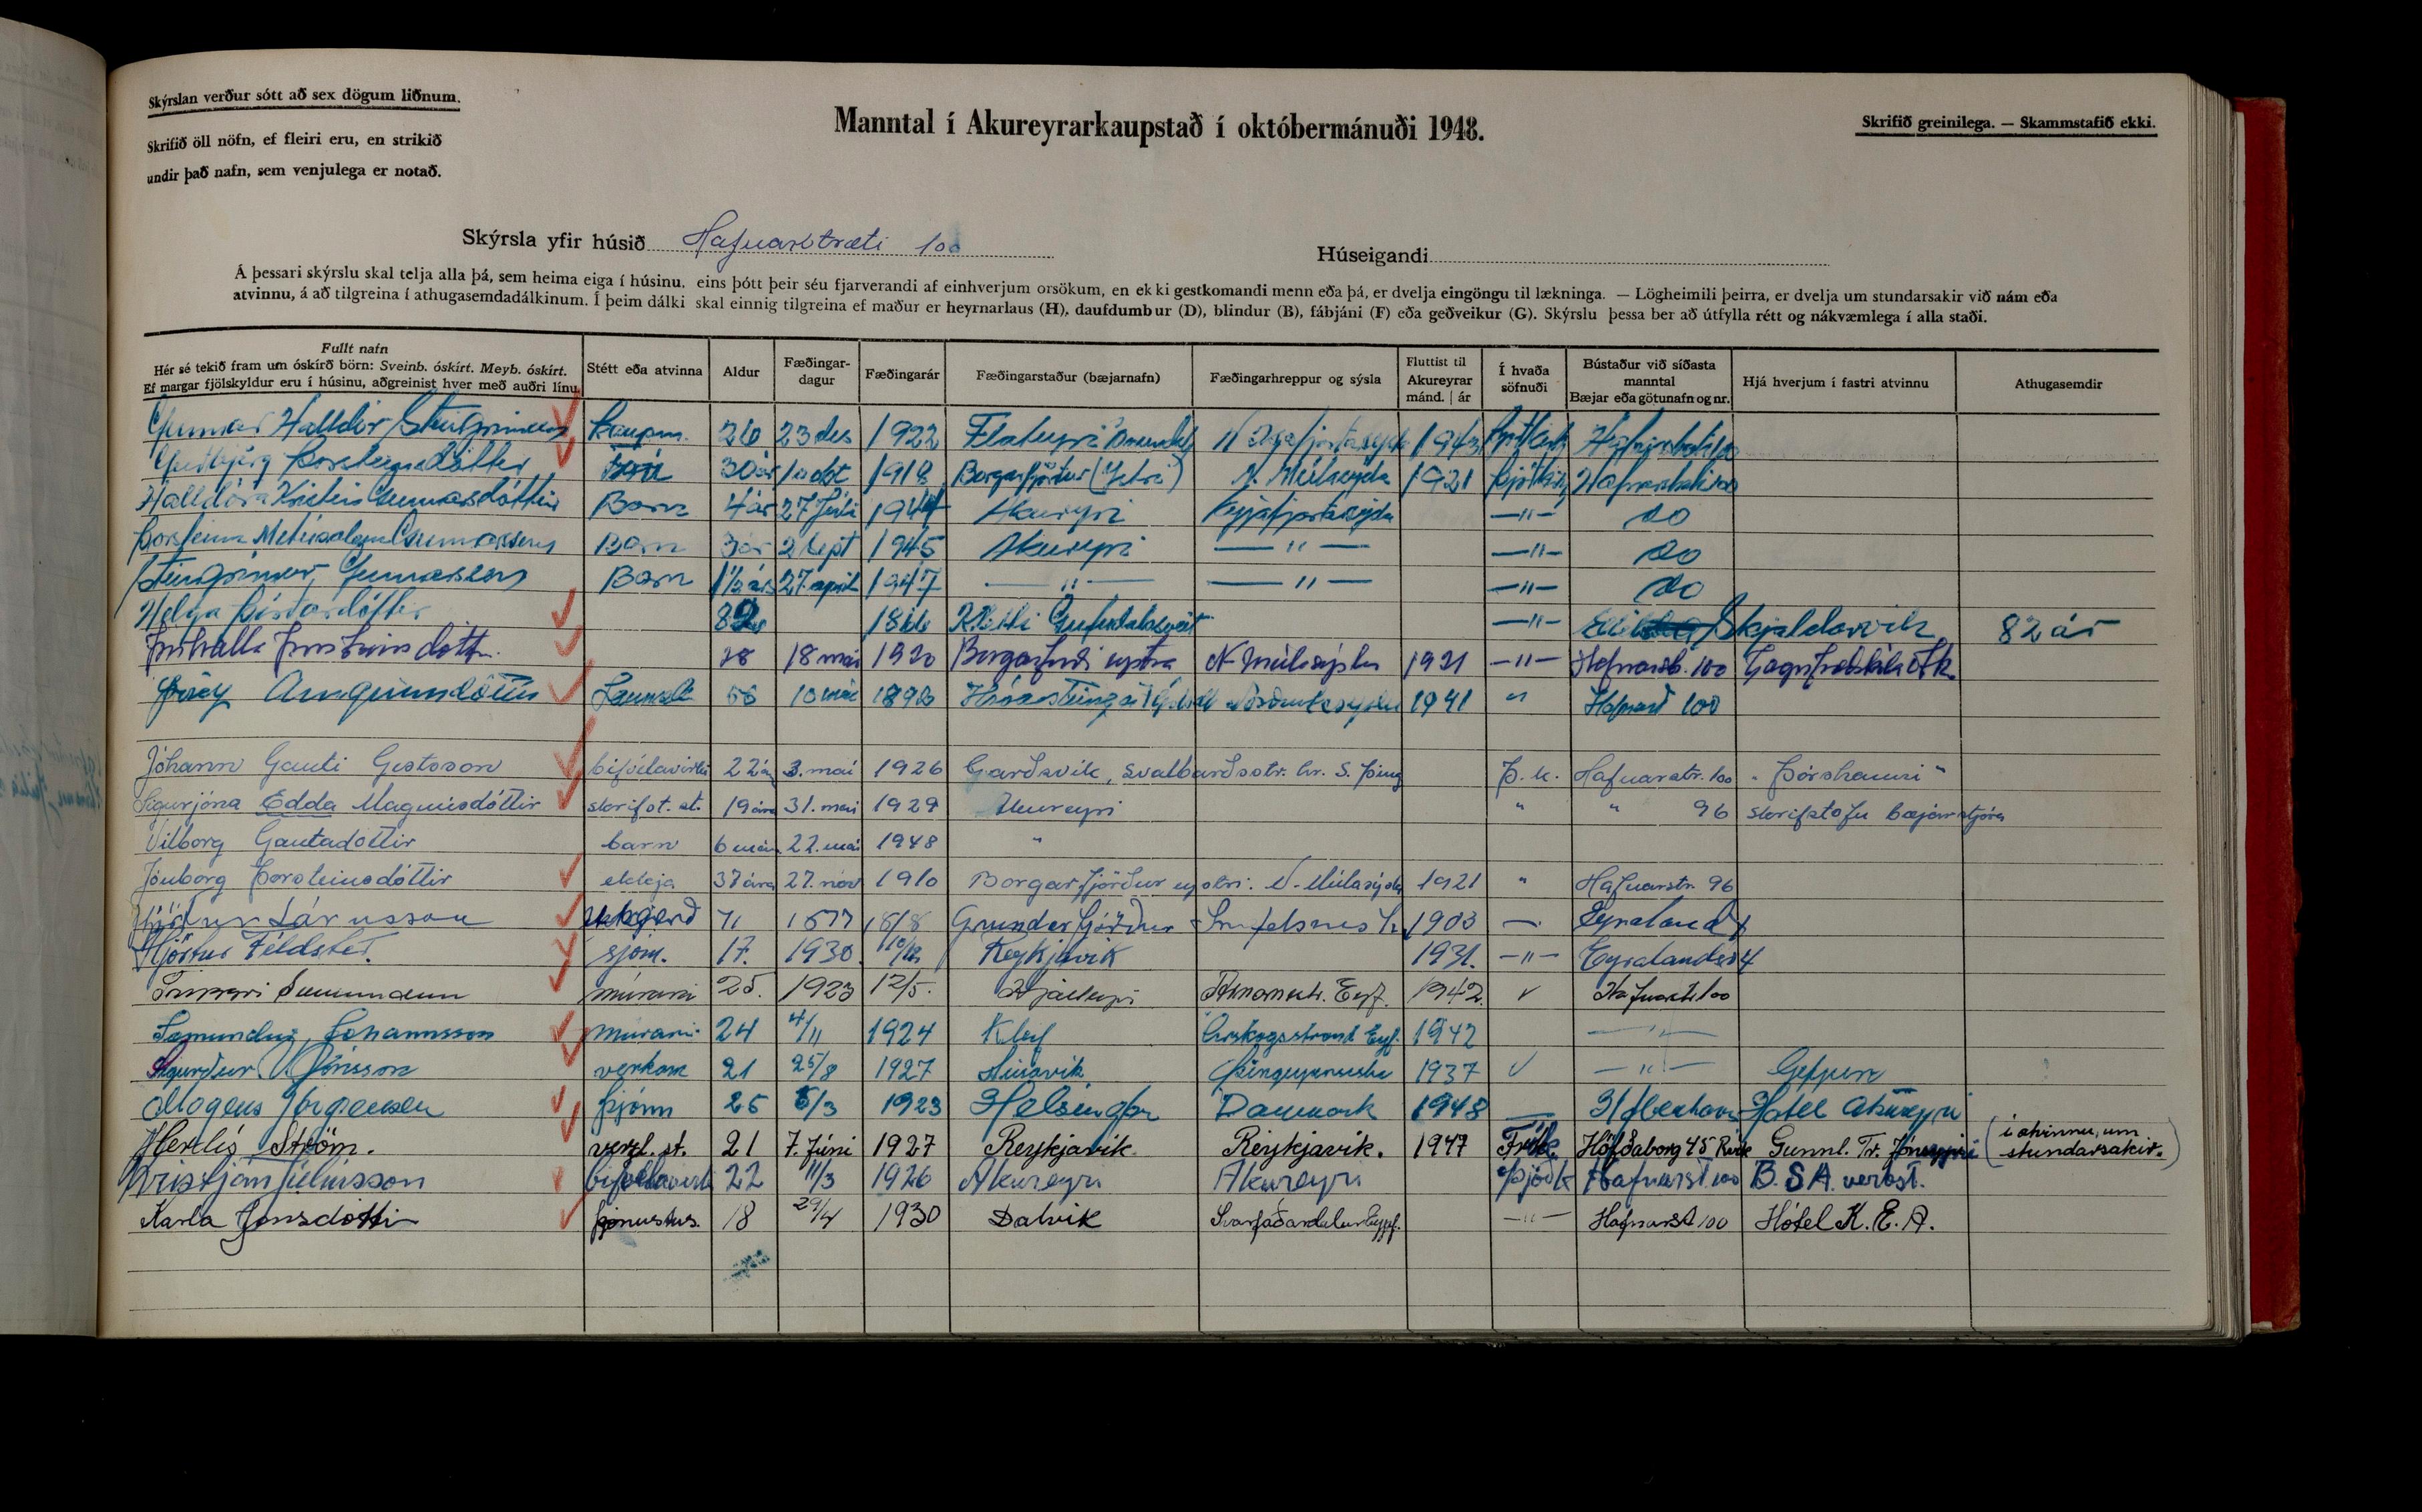 Skýrslan verður sótt að sex dögum liðnum.
Skrifið öll nöfn, ef fleiri eru, en strikið
undir það nafn, sem venjulega er notað.
Manntal í Akureyrarkaupstað í októbermánuði 1948.
Skrifið greinilega. — Skammstafið ekki.
Skýrsla yfir húsið Hafnarstræti 100
Húseigandi
Á þessari skýrslu skal telja alla þá, sem heima eiga í húsinu, eins þótt þeir séu fjarverandi af einhverjum orsökum, en ekki gestkomandi menn eða þá, er dvelja eingöngu til lækninga. — Lögheimili þeirra, er dvelja um stundarsakir við nám eða
atvinnu, á að tilgreina í athugasemdadálkinum. Í þeim dálki skal einnig tilgreina ef maður er heyrnarlaus (H), daufdumbur (D), blindur (B), fábjáni (F) eða geðveikur (G). Skýrslu þessa ber að útfylla rétt og nákvæmlega í alla staði.
Fullt nafn Hér sé tekið fram um óskírð börn: Sveinb. óskírt. Meyb. óskírt. Ef margar fjölskyldur eru í húsinu, aðgreinist hver með auðri línu. Stétt eða atvinna Aldur Fæðingar-dagur Fæðingarár Fæðingarstaður (bæjarnafn) Fæðingarhreppur og sýsla Fluttist til Akureyrar mánd. | ár Í hvaða söfnuði Bústaður við síðasta manntal Bæjar eða götunafn og nr. Hjá hverjum í fastri atvinnu Athugasemdir
Gunnar Halldór Steingrímsson kaupm. 26 23 des 1922 Flateyri 1943
Guðbjörg Þorsteinsdóttir 30 ár 10 okt 1918 Borgarfjörður N. Múlasýsla 1921
Halldóra Kristín Gunnarsdóttir Barn 4 ár 27 Júlí 1944 Akureyri Eyjafjarðarsýsla —"— do
Þorsteinn Gunnarsson Barn 3 ár 2 sept 1945 Akureyri —"— —"— do
Steingrímur Gunnarsson Barn 1½ árs 27. apríl 1947 —"— —"— —"— do
Helga Þórðardóttir 82 1866 Gufudalssveit —"— Skjaldarvík 82 ár
Þórhalla Þorsteinsdóttir 28 18 maí 1920 Borgarfirði eystra N-Múlasýslu 1921 —"— Hafnarstr. 100
Þórey Arngrímsdóttir 10 maí 1941 " 100
Jóhann Gauti Gestsson bifvélavirki 22 ára 3. maí 1926 Garðsvík, Svalbarðsstr. hr. S. Þing Þ.k. Hafnarstr. 100 "Þórshamri"
Sigurjóna Edda Magnúsdóttir skrifst. st. 19 ára 31. maí 1929 Akureyri " " 96 skrifstofu bæjarstjóra
Vilborg Gautadóttir barn 6 mán. 22. maí 1948 "
Jónborg Þorsteinsdóttir ekkja 37 ára 27. nóv 1910 Borgarfjörður eystri. N-Múlasýsla 1921 " Hafnarstr. 96
Hjörtur Lárusson 71 1877 18/8 Grundarfjörður 1903 —
Hjörtur Fjeldsted. sjóm. 17. 1930. Reykjavík 1931. —"— Eyralandsv 4
25. 1923 12/5. Hjalteyri 1942.
Sæmundur Jóhannsson múrari 24 4/11 1924 Klef Árskógsströnd Eyf. 1942 —"—
Sigurður V. Jónsson verkam 21 25/8 1927 Húsavík 1937 —"— Gefjun
Mogens Jörgensen þjónn 25 5/3 1923 Helsingör Danmark 1948 — Hotel Akureyri
Herdís Ström. verzl. st. 21 7. Júní 1927 Reykjavík Reykjavík. 1947 Frík. Höfðaborg 45 Rvík Gunnl. Tr. Jónssyni (í atvinnu um stundarsakir.)
Kristján Júlíusson bifvélavirki 22 11/3 1926 Akureyri Akureyri Þjóðk Hafnarst. 100 B.S.A. verkst.
Karla Jónsdóttir þjónustus. 18 29/4 1930 Dalvík Svarfaðardalur Eyjaf. —"— Hafnarst 100 Hótel K.E.A.